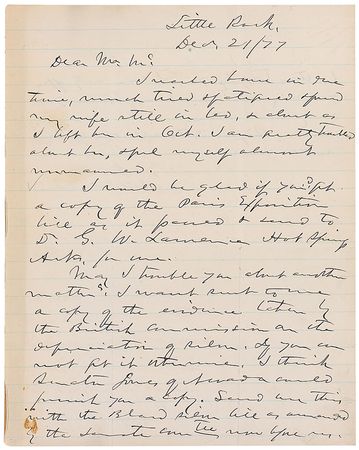 Little Rock,
Dec. 21/77
Dear Mr. Mc.
I reached home in due
time, much tired & fatigued & found
my wife still in bed, & about as
I left her in Oct. I am pretty troubled
about her, & feel myself almost
unmanned.
I would be glad if you'd get
a copy of the Paris Exposition
bill as it passed & send to
Dr. G. W. Lawrence Hot Springs
Ark. for me.
May I trouble you about another
matter? I want sent to me
a copy of the evidence taken by
the British Commission on the
depreciation of silver. If you can
not get it otherwise, I think
Senator Jones of Nevada could
furnish you a copy. Send me this
with the Bland silver bill as amended
by the Senate Com tee now upon